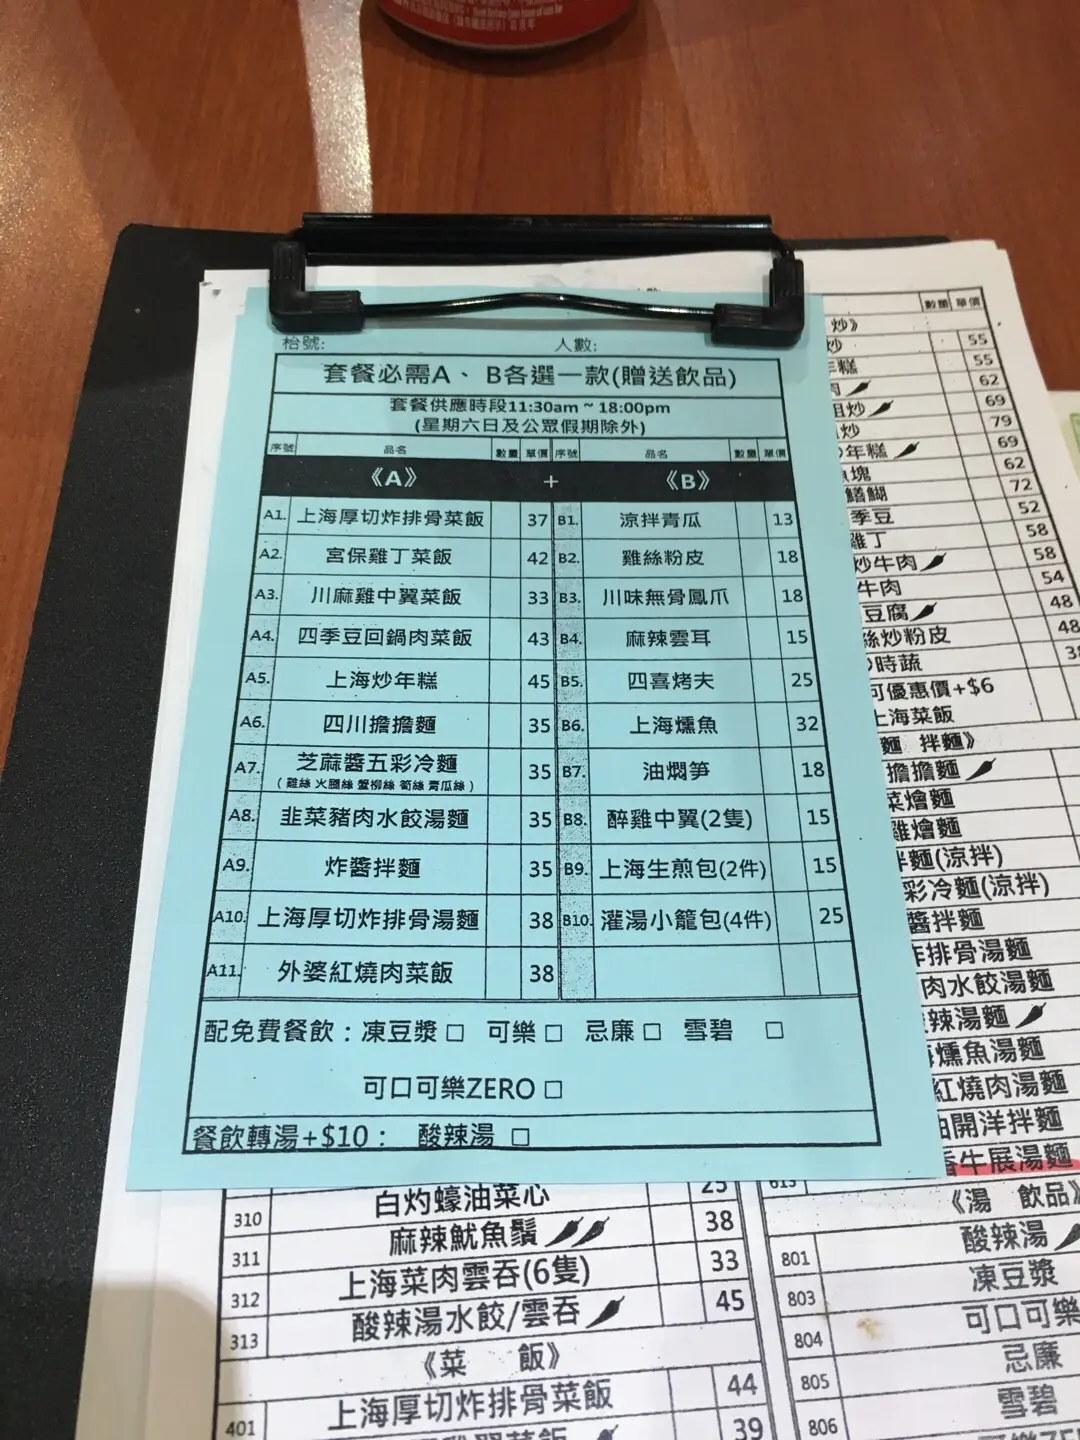 枱號: 人數:
套餐必需A、 B各選一款(贈送飲品)
套餐供應時段11:30am ~ 18:00pm
(星期六日及公眾假期除外)
序號 品名 數量 單價 序號 品名 數量 單價
《A》 + 《B》
A1. 上海厚切炸排骨菜飯 37 B1. 涼拌青瓜 13
A2. 宮保雞丁菜飯 42 B2. 雞絲粉皮 18
A3. 川麻雞中翼菜飯 33 B3. 川味無骨鳳爪 18
A4. 四季豆回鍋肉菜飯 43 B4. 麻辣雲耳 15
A5. 上海炒年糕 45 B5. 四喜烤夫 25
A6. 四川擔擔麵 35 B6. 上海燻魚 32
A7. 芝蔴醬五彩冷麵 35 B7. 油燜笋 18
(雞絲 火腿絲 蟹柳絲 筍絲 青瓜絲)
A8. 韭菜豬肉水餃湯麵 35 B8. 醉雞中翼(2隻) 15
A9. 炸醬拌麵 35 B9. 上海生煎包(2件) 15
A10. 上海厚切炸排骨湯麵 38 B10. 灌湯小籠包(4件) 25
A11. 外婆紅燒肉菜飯 38
配免費餐飲：凍豆漿 □ 可樂 □ 忌廉 □ 雪碧 □
可口可樂ZERO □
餐飲轉湯+$10： 酸辣湯 □
數量 單價
炒》
炒 55
年糕 55
肉 62
炒 69
炒 79
年糕 69
塊 62
鱔糊 72
季豆 52
雞丁 58
炒牛肉 58
牛肉 54
豆腐 48
絲炒粉皮 48
時蔬
可優惠價+$6
上海菜飯
麵 拌麵》
擔擔麵
菜燴麵
雞燴麵
拌麵(涼拌)
彩冷麵(涼拌)
醬拌麵
炸排骨湯麵
肉水餃湯麵
辣湯麵
燻魚湯麵
紅燒肉湯麵
油開洋拌麵
牛展湯麵
613
《湯 飲品》
801 酸辣湯
803 凍豆漿
804 可口可樂
805 忌廉
806 雪碧
可樂ZE
310 白灼蠔油菜心 25
311 麻辣魷魚鬚 38
312 上海菜肉雲吞(6隻) 33
313 酸辣湯水餃/雲吞 45
《菜 飯》
401 上海厚切炸排骨菜飯 44
39